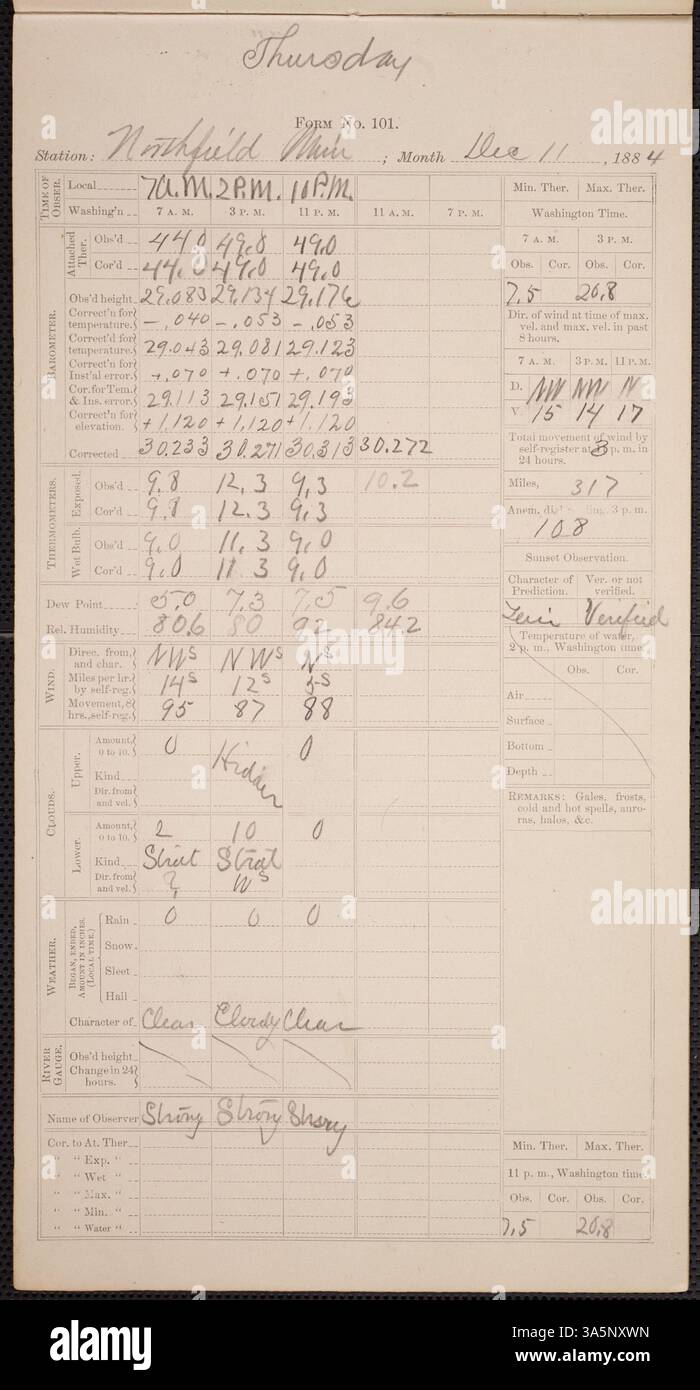 Thursday
FORM NO. 101.
Station: Northfield Minn ; Month Dec 11 , 1884
TIME OF OBSER. Local 7 A.M. 2 P.M. 10 P.M. Min. Ther. Max. Ther.
Washing'n 7 A. M. 3 P. M. 11 P. M. 11 A. M. 7 P. M. Washington Time.
7 A. M. 3 P. M.
BAROMETER.
Attached Ther. Obs'd 44.0 49.8 49.0
Cor'd 44.0 49.0 49.0 Obs. Cor. Obs. Cor.
Obs'd height 29.083 29.134 29.176 7.5 20.8
Correct'n for temperature. -.040 -.053 -.053 Dir. of wind at time of max. vel. and max. vel. in past 8 hours.
Correct'd for temperature. 29.043 29.081 29.123
Correct'n for Inst'al error. +.070 +.070 +.070 7 A. M. 3 P. M. 11 P. M.
Cor. for Tem. & Ins. error. 29.113 29.151 29.193 D. NW NW N
Correct'n for elevation. +1.120 +1.120 +1.120 V. 15 14 17
Corrected 30.233 30.271 30.313 30.272 Total movement of wind by self-register at 3 p. m. in 24 hours.
THERMOMETERS.
Exposed. Obs'd 9.8 12.3 9.3 10.2 Miles, 317
Cor'd 9.8 12.3 9.3 Anem. 3 p. m.
108
Wet Bulb. Obs'd 9.0 11.3 9.0
Cor'd 9.0 11.3 9.0 Sunset Observation.
Character of Prediction. Ver. or not verified.
Dew Point 5.0 7.3 7.5 9.6 Fair Verified
Rel. Humidity 80.6 80 92 84.2 Temperature of water, 2 p. m., Washington time
WIND.
Direc. from, and char. NW s NW s N s
Miles per hr. by self-reg. 14 s 12 s 5 s Obs. Cor.
Movement, 8 hrs., self-reg. 95 87 88 Air
Surface
CLOUDS.
Upper. Amount, 0 to 10. 0 Hidden 0 Bottom
Kind Depth
Dir. from and vel. REMARKS: Gales, frosts, cold and hot spells, auroras, halos, &c.
Lower. Amount, 0 to 10. 2 10 0
Kind Strat Strat
Dir. from and vel. ? W s
WEATHER.
BEGAN, ENDED, AMOUNT IN INCHES. (LOCAL TIME.)
Rain 0 0 0
Snow.
Sleet
Hail
Character of Clear Cloudy Clear
RIVER GAUGE.
Obs'd height
Change in 24 hours.
Name of Observer Strong Strong Strong
Cor. to At. Ther. Min. Ther. Max. Ther.
" " Exp. " 11 p. m., Washington time
" " Wet "
" " Max. " Obs. Cor. Obs. Cor.
" " Min. "
" " Water " 7.5 20.8
alamy
Image ID: 3A5NXWN
www.alamy.com